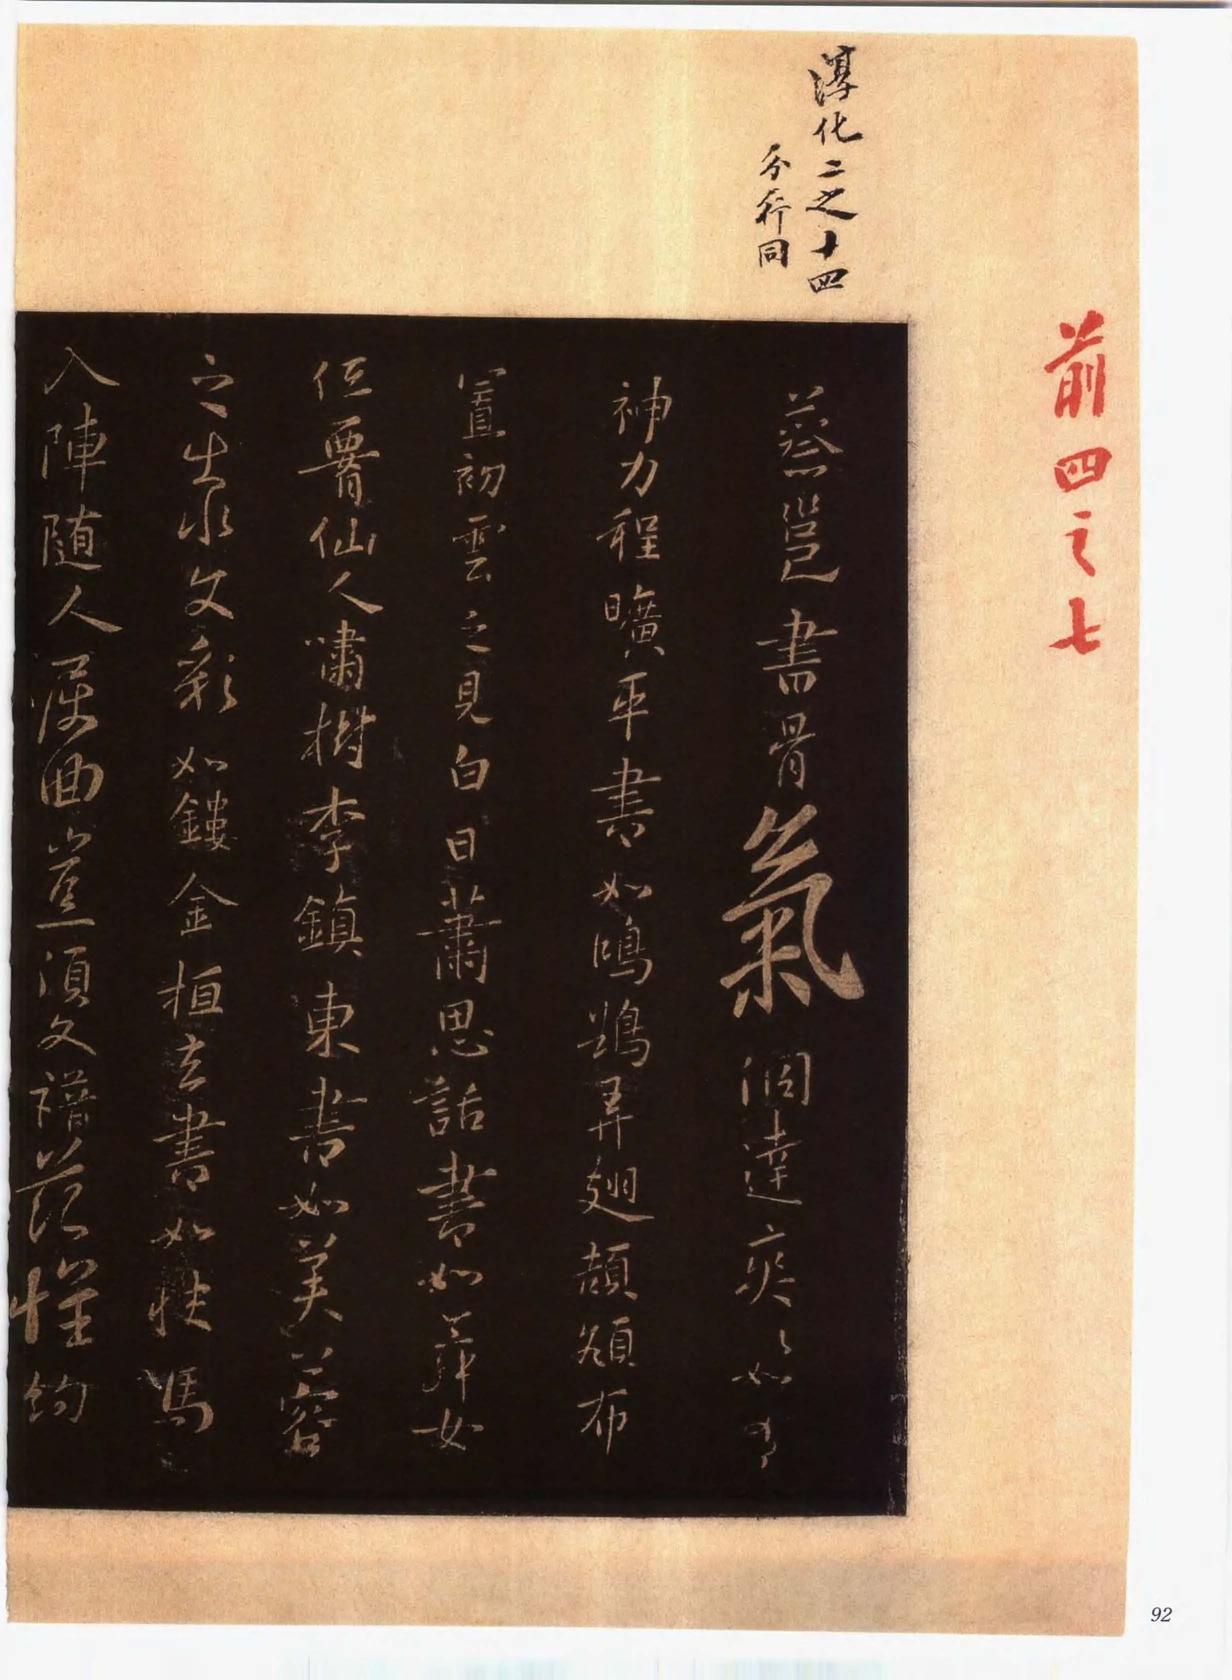 前四之七
淳化二之十四
分行同
蔡邕書骨氣洞達爽〻如有
神力程曠平書如鴻鵠弄翅頡頏布
置初雲之見白日蕭思話書如舞女
低腰仙人嘯樹李鎮東書如芙蓉
之出水文彩如鏤金桓玄書如快馬
入陣随人屈曲豈須文譜范懷約
92